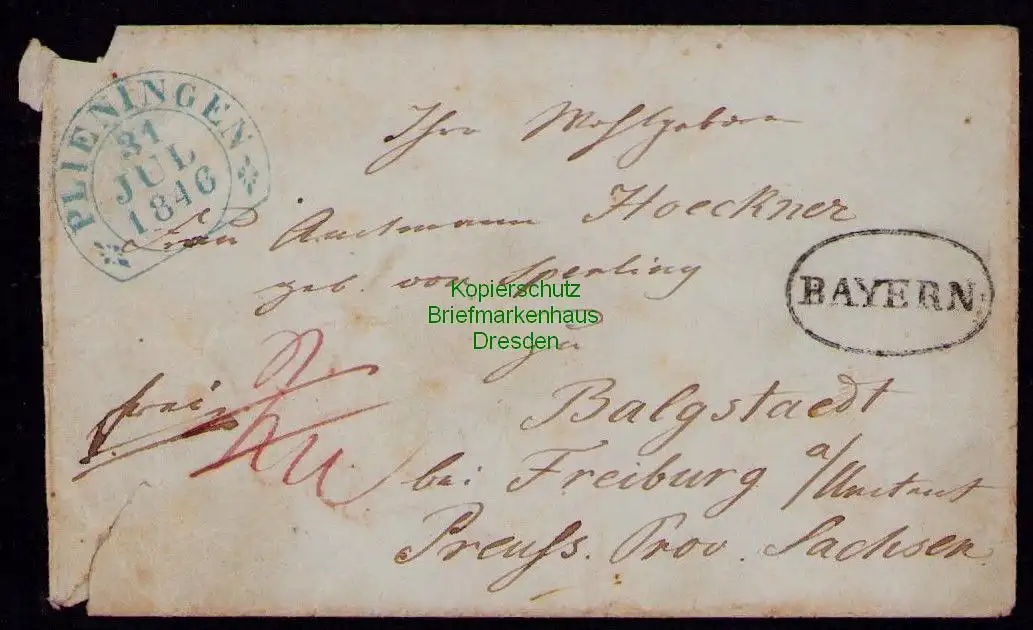 PLIENINGEN
31
JUL
1846
Ihro Wohlgeboren
Frau Amtmann Hoeckner
geb. von Sperling
BAYERN
Kopierschutz
Briefmarkenhaus
Dresden
zu
frei
Balgstaedt
bei Freiburg a/Unstrut
Preuss. Prov. Sachsen